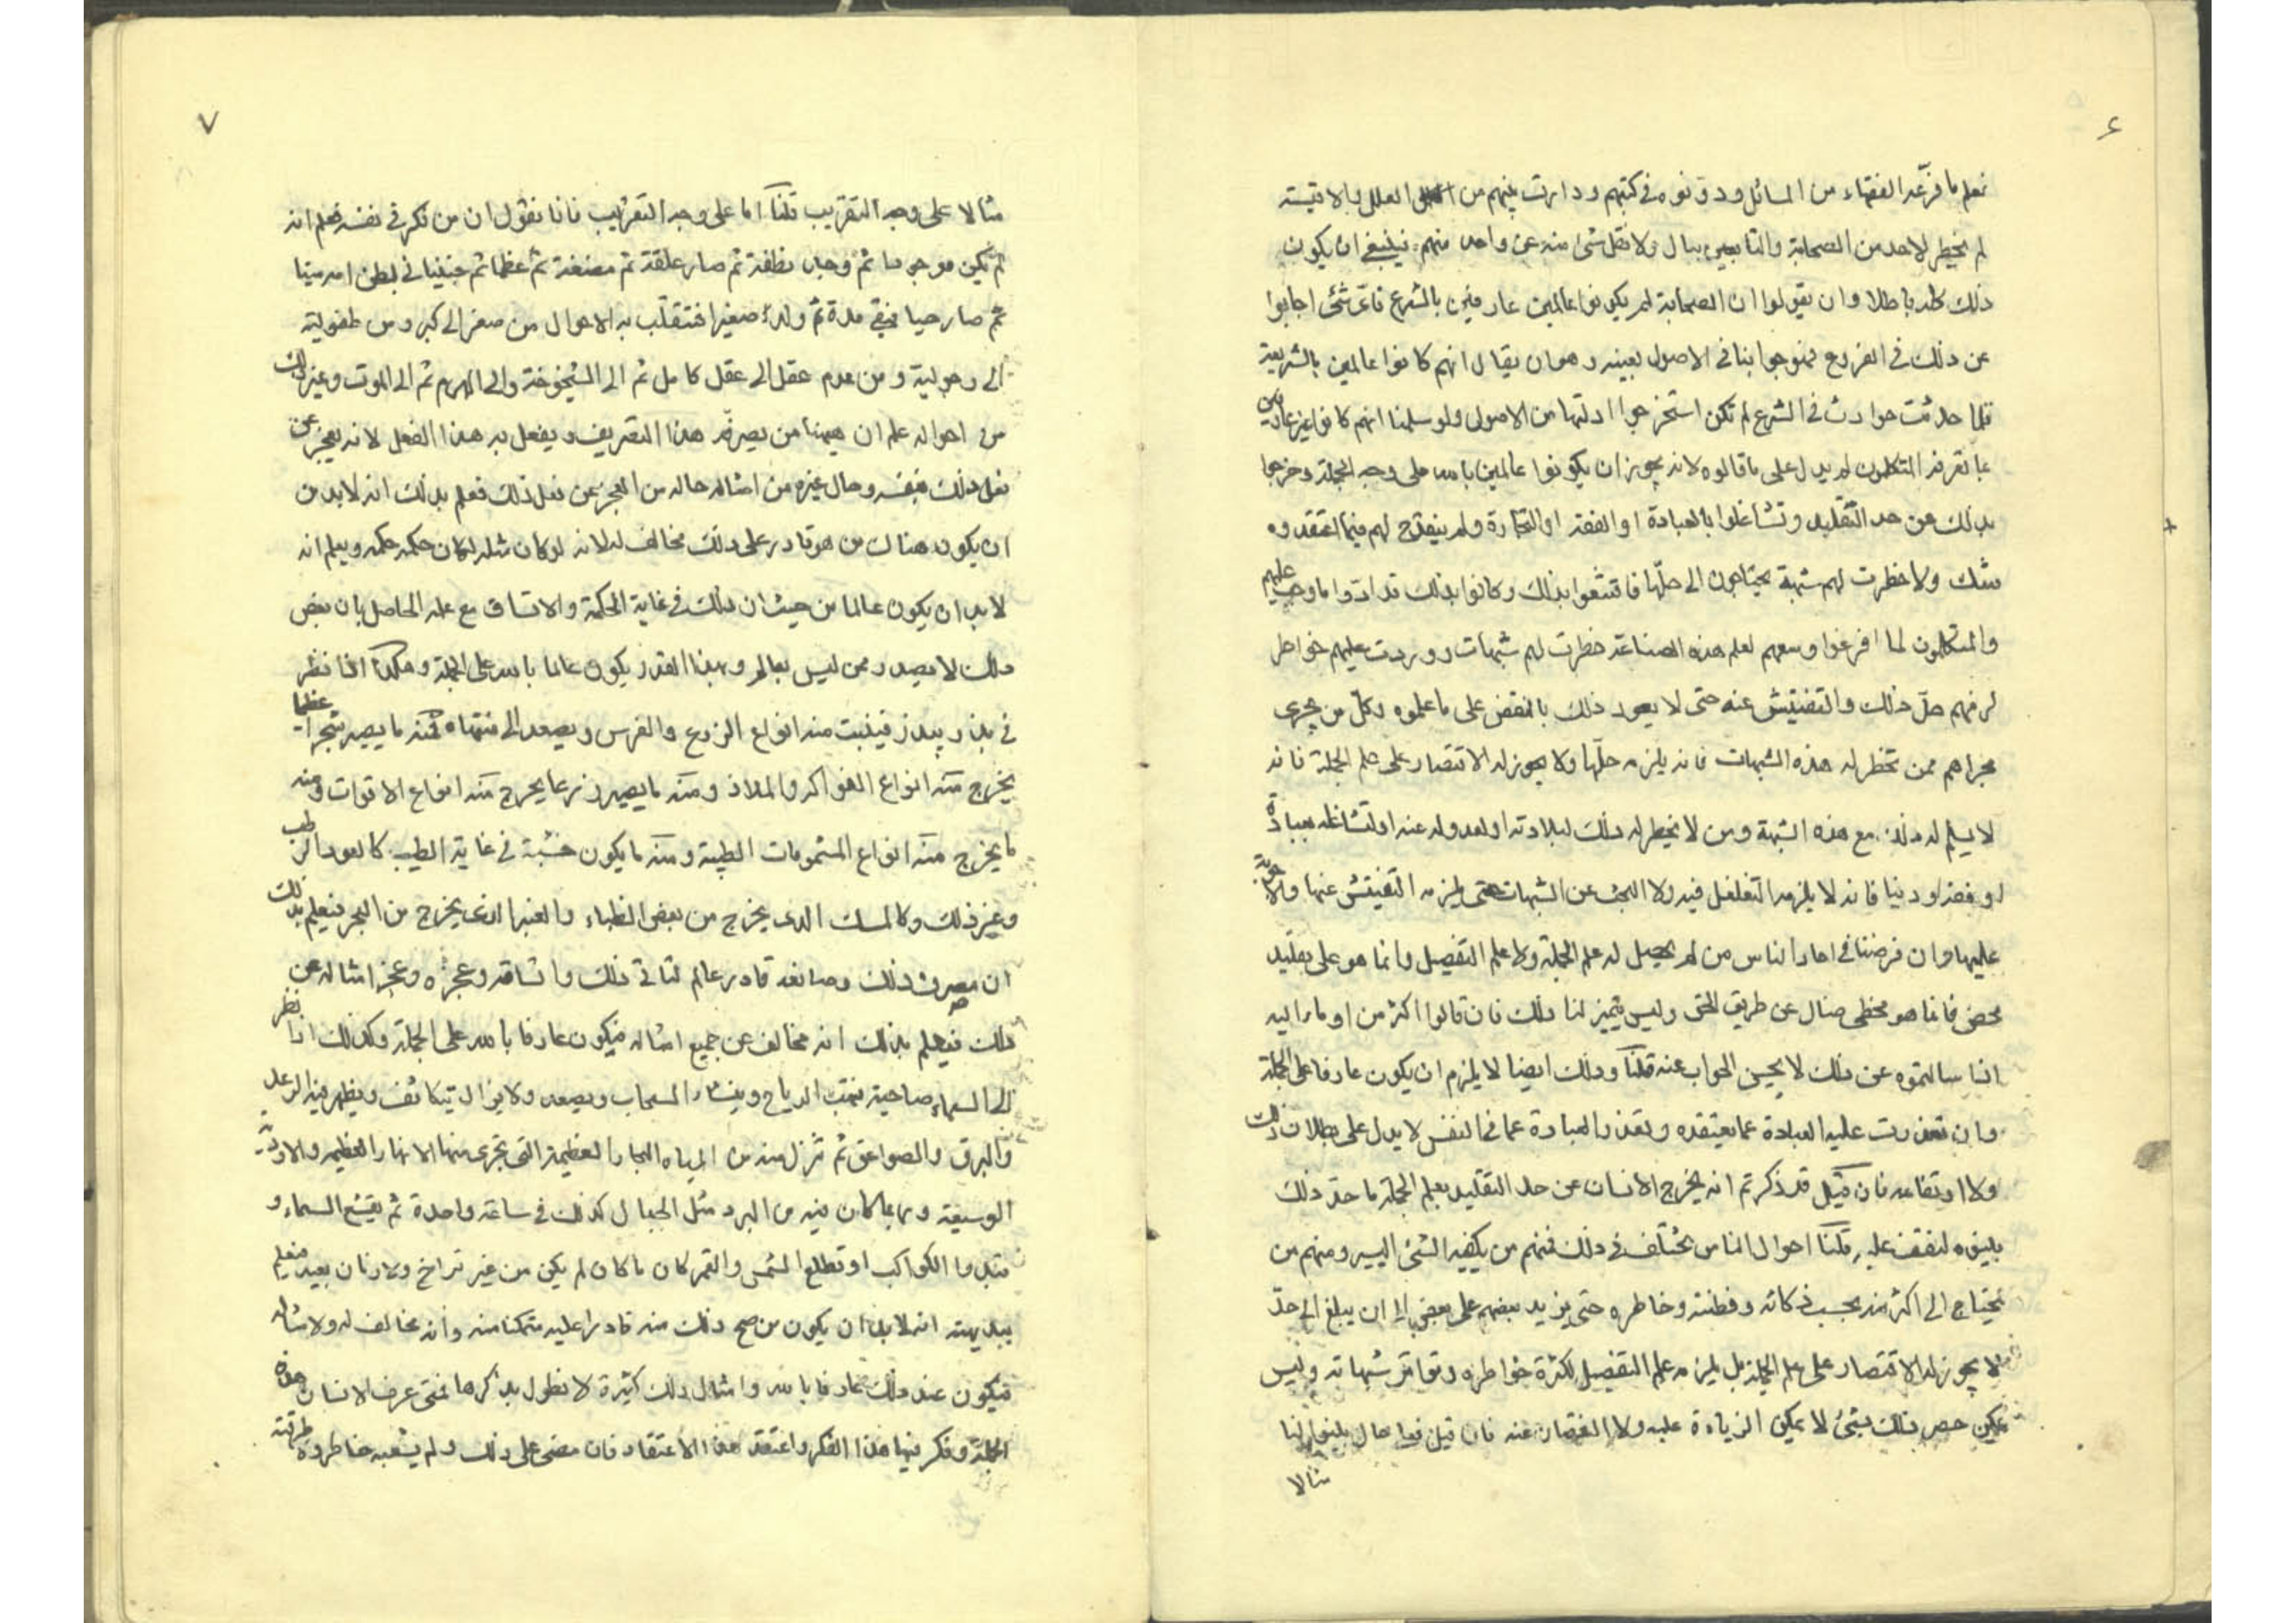 ۶
نعلم ما فرّعه الفقهاء من المسائل ودونوه في كتبهم ودارت بينهم من العلل والاقيسة
لم يخطر لاحد من الصحابة والتابعين ببال ولا نقل شئ منه عن واحد منهم فينبغي ان يكون
ذلك كله باطلا وان يقولوا ان الصحابة لم يكونوا عالمين عارفين بالشرع فاىّ شئ اجابوا
عن ذلك في الفروع فهو جوابنا في الاصول بعينه وهو ان يقال انهم كانوا عالمين بالشريعة
فلما حدثت حوادث في الشرع لم تكن استخرجوا ادلتها من الاصول ولو سلمنا انهم كانوا غير عارفين
بما تعرفه المتكلمون لم يدل على ما قالوه لانه يجوز ان يكونوا عالمين بالله على وجه الجملة وخرجوا
بذلك عن حد التقليد وتشاغلوا بالعبادة او الفقه او التجارة ولم ينقدح لهم فيما اعتقدوه
شك ولا خطرت لهم شبهة يحتاجون الى حلّها فاقتنعوا بذلك وكانوا بذلك قد ادّوا ما وجب عليهم
والمتكلمون لما افرغوا وسعهم لعلم هذه الصناعة خطرت لهم شبهات ووردت عليهم خواطر
لزمهم حلّ ذلك والتفتيش عنه حتى لا يعود ذلك بالنقض على ما علموه وكلّ من يجرى
مجراهم ممن تخطر له هذه الشبهات فانه يلزمه حلّها ولا يجوز له الاقتصار على علم الجملة فانه
لا يسلم له ذلك مع هذه الشبهة ومن لا يخطر له ذلك لبلادته او لعدوله عنه او لتشاغله بعبادة
او فقه او دنيا فانه لا يلزمه التغلغل فيه ولا البحث عن الشبهات حتى يلزمه التفتيش عنها والاجوبة
عليها وان فرضنا في احاد الناس من لم يحصل له علم الجملة ولا علم التفصيل وانما هو على تقليد
محض فانما هو مخطى ضال عن طريق الحق وليس يتميز لنا ذلك فان قالوا اكثر من اومأ اليه
اذا سالتموه عن ذلك لا يحسن الجواب عنه قلنا وذلك ايضا لا يلزم ان يكون عارفا على الجملة
وان تعذرت عليه العبادة عما يعتقده وتعذر العبادة عما في النفس لا يدل على بطلان ذلك
ولا ارتفاعه فان قيل قد ذكرتم انه يخرج الانسان عن حد التقليد بعلم الجملة ما حدّ ذلك
بينوه لنقف عليه قلنا احوال الناس يختلف في ذلك فمنهم من يكفيه الشئ اليسير ومنهم من
يحتاج الى اكثر منه بحسب ذكائه وفطنته وخاطره حتى يزيد بعضهم على بعض الى ان يبلغ الى حدّ
لا يجوز له الاقتصار على علم الجملة بل يلزمه علم التفصيل لكثرة خواطره وتواتر شبهاته وليس
يمكن حصر ذلك بشئ لا يمكن الزيادة عليه ولا النقصان عنه فان قيل فعلى حال بينوا لنا
مثالا
۷
مثالا على وجه التقريب قلنا اما على وجه التقريب فانا نقول ان من فكر في نفسه فعلم انه
لم يكن موجودا ثم وجد نطفة ثم صار علقة ثم مضغة ثم عظما ثم جنينا في بطن امه ميتا
ثم صار حيا فبقى مدة ثم ولد صغيرا فتتقلّب به الاحوال من صغر الى كبر ومن طفولية
الى رجولية ومن عدم عقل الى عقل كامل ثم الى الشيخوخة والى الهرم ثم الى الموت وغير ذلك
من احواله علم ان هيهنا من يصرفه هذا التصريف ويفعل به هذا الفعل لانه يعجز عن
فعل ذلك بنفسه وحال غيره من امثاله حاله من العجز عن فعل ذلك فعلم بذلك انه لابد من
ان يكون هناك من هو قادر على ذلك مخالف له لانه لو كان مثله لكان حكمه حكمه ويعلم انه
لابد ان يكون عالما من حيث ان ذلك في غاية الحكمة والاتساق مع علمه الحاصل بان بعض
ذلك لا يصدر ممن ليس بعالم وبهذا القدر يكون عالما بالله على الجملة وهكذا اذا نظر
في بذر يبذر فينبت منه انواع الزرع والغرس ويصعد الى منتهاه فمنه ما يصير شجرا عظيما
يخرج منه انواع الفواكه والملاذ ومنه ما يصير زرعا يخرج منه انواع الاقوات ومنه
ما يخرج منه انواع المشمومات الطيبة ومنه ما يكون خشبة في غاية الطيب كالعود الرطب
وغير ذلك وكالمسك الذى يخرج من بعض الظباء والعنبر الذى يخرج من البحر فيعلم بذلك
ان مصرف ذلك وصانعه قادر عالم لتاتى ذلك واتساقه وعجزه وعجز امثاله عن
ذلك فيعلم بذلك انه مخالف عن جميع امثاله فيكون عارفا بالله على الجملة وكذلك اذا نظر
الى السماء صاحية فتهب الرياح وينشاء السحاب ويصعد ولا يزال يتكاثف ويظهر فيه الرعد
والبرق والصواعق ثم تنزل منه من المياه البحار العظيمة التى تجرى منها الانهار العظيمة والاودية
الوسيعة وربما كان فيه من البرد مثل الجبال كل ذلك في ساعة واحدة ثم يقشع السماء و
تبدوا الكواكب او تطلع الشمس والقمر كان ما كان لم يكن من غير تراخ ولا زمان بعيد فيعلم
ببديهته انه لابد ان يكون من صح ذلك منه قادرا عليه متمكنا منه وانه مخالف له ولامثاله
فيكون عند ذلك عارفا بالله وامثال ذلك كثيرة لا نطول بذكرها فمتى عرف الانسان هذه
الجملة وفكر فيها هذا الفكر واعتقد هذا الاعتقاد فان مضى على ذلك ولم يشعبه خاطر وطرقته